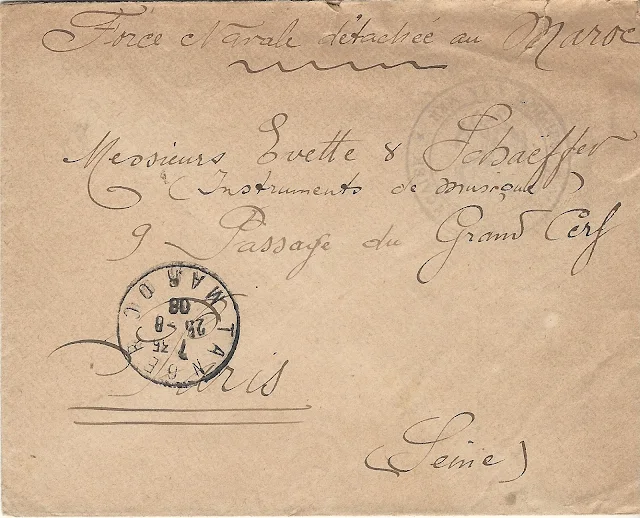 Force Navale détachée au Maroc
Messieurs Evette & Schaëffer
(Instruments de musique)
9 Passage du Grand Cerf
Paris
(Seine)
TANGER
7 35
25 - 8
08
MAROC